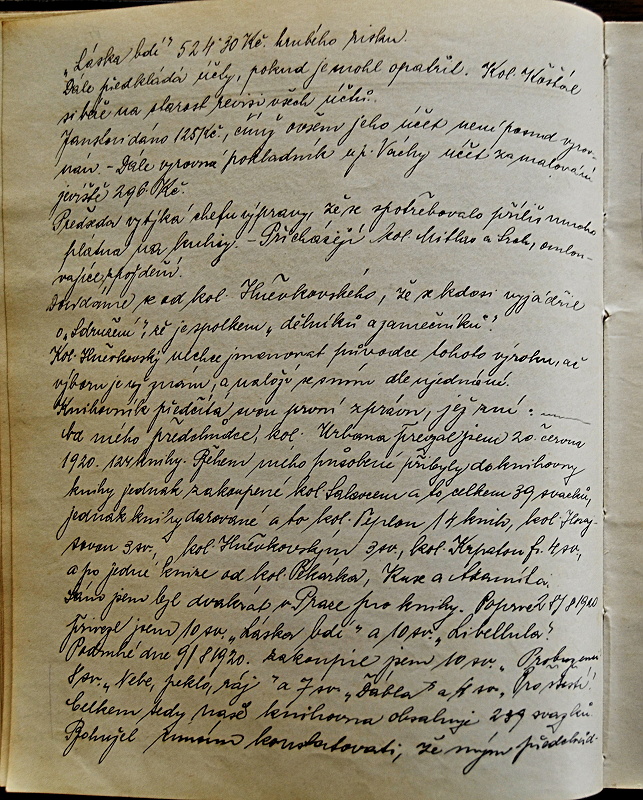 „Láska bdí" 524·30 Kč. hrubého zisku.
Dále předkládá účty, pokud je mohl opatřit. Kol. Košťál
si béře na starost revisi všech účtů.
Janskovi dáno 125 Kč., čímž ovšem jeho účet není posud vyrov-
nán. - Dále vyrovná pokladník up. Váchy účet za malování
jeviště 296·Kč.
Předseda vytýká chefu výpravy, že se spotřebovalo příliš mnoho
plátna na kulisy. - Přicházejí kol. a omlou-
vajíce
Dovídáme se od kol. Hněvkovského, že se kdosi vyjádřil
o „Sdružení", že je spolkem „dělníků a zámečníků".
Kol. Hněvkovský nechce jmenovat původce tohoto výroku, ač
výboru je již znám, a naloží se s ním dle ujednání.
Knihovník předčítá svou první zprávu, jež zní:
Od mého předchůdce, kol. Urbana převzal jsem 20. června
1920. 124 knihy. Během mého působení přibyly do knihovny
knihy jednak zakoupené kol. a to celkem 39 svazků,
jednak knihy darované a to kol. 14 knih, kol.
3 sv., kol. Hněvkovským 3 sv., kol. 4 sv.,
a po jedné knize od kol. Pekárka, a Adamíta.
Sám jsem byl dvakrát v Praze pro knihy. Poprvé 2/8 1920
přivezl jsem 10 sv. „Láska bdí" a 10 sv. „Libellula".
Podruhé dne 9/8 1920. zakoupil jsem 10 sv.
8 sv. „Nebe, peklo, ráj" a 7 sv. „Ďábla" a 4 sv. „Pro štěstí".
Celkem tedy naše knihovna obsahuje 239 svazků.
Bohužel nutno konstatovati, že mým předchůd-